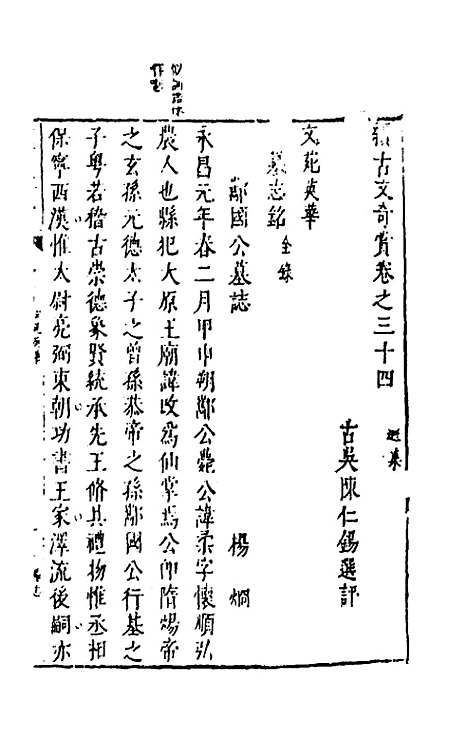 續古文奇賞卷之三十四
選集
古吳陳仁錫選評
文苑英華
墓志銘 全錄
鄰國公墓誌 楊烱
永昌元年春二月甲申朔鄰公薨公諱柔字懷順弘
農人也縣犯大原王廟諱改為仙掌焉公即隋煬帝
之玄孫元德太子之曾孫恭帝之孫鄰國公行基之
子粵若稽古崇德象賢統承先王脩其禮物惟丞相
保寧西漢惟大尉亮弼東朝功書王家澤流後嗣亦